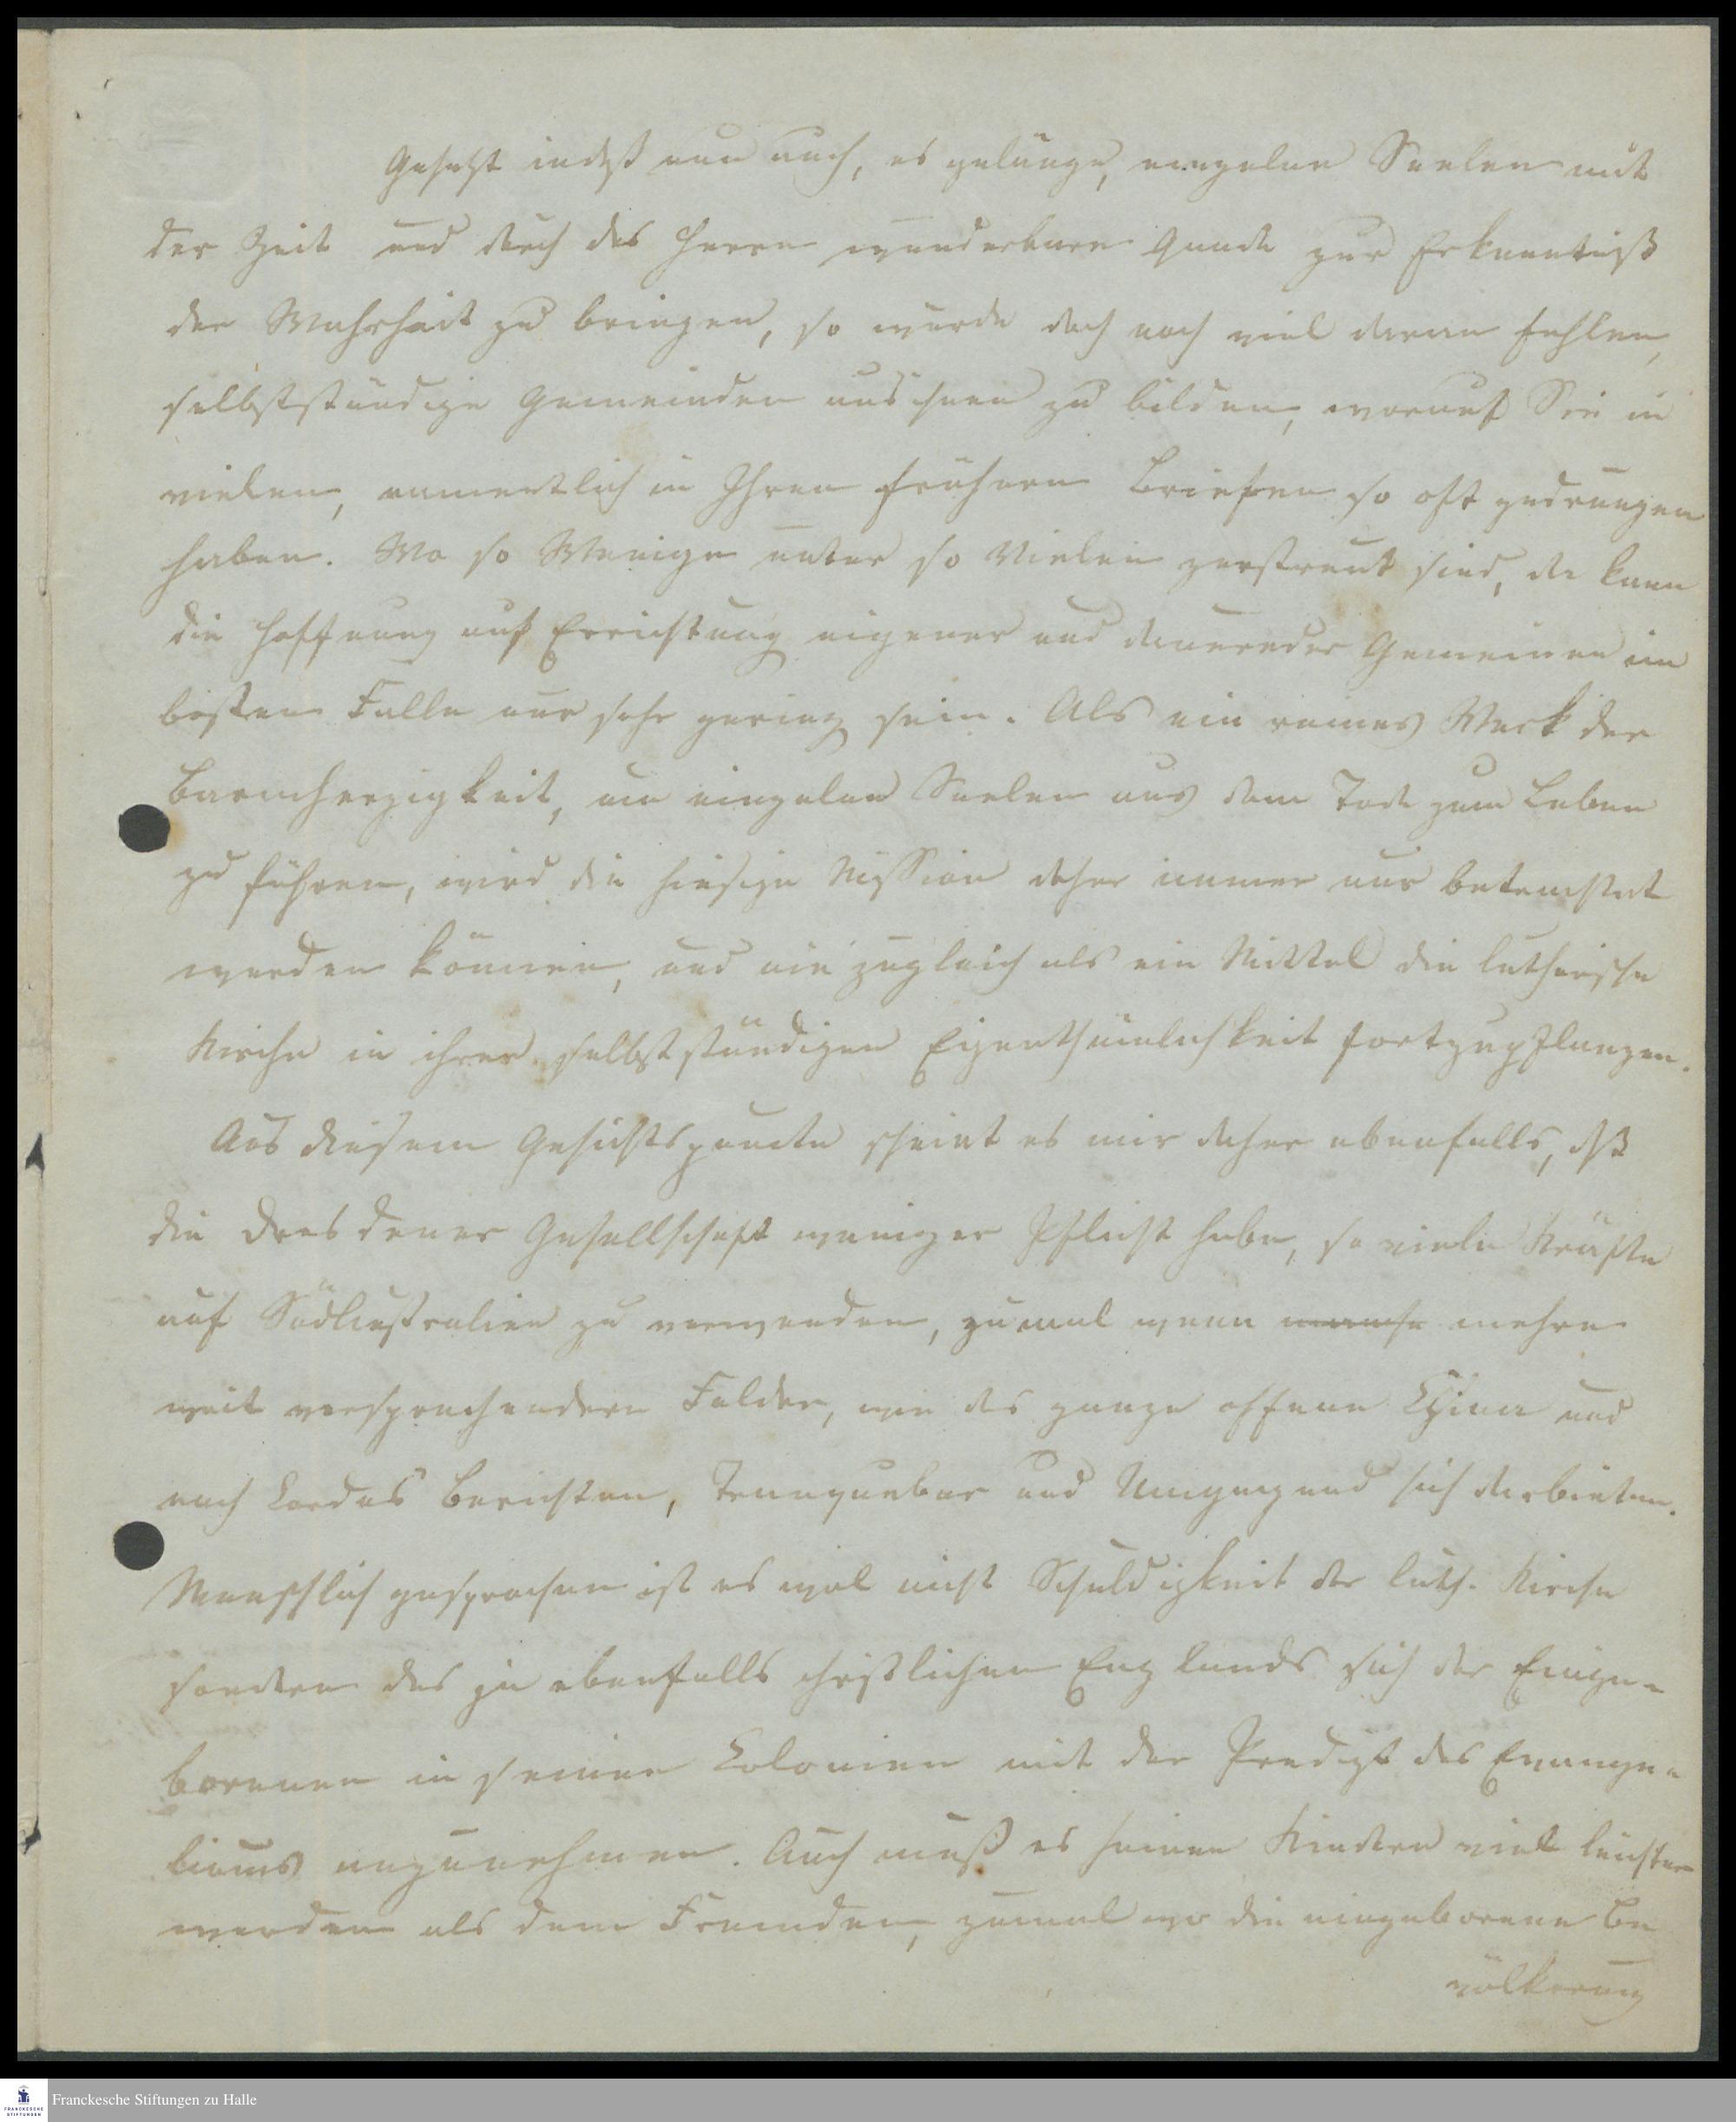 Gesetzt indeß nun auch, es gelänge, einzelne Seelen mit
der Zeit und durch des Herrn wunderbare Gnade zur Erkenntniß
der Wahrheit zu bringen, so würde doch noch viel daran fehlen,
selbstständige Gemeinden aus ihnen zu bilden, worauf Sie in
vielen, namentlich in Ihren frühern Briefen so oft gedrungen
haben. Wo so Wenige unter so Vielen zerstreut sind, da kann
die Hoffnung auf Errichtung eigener und dauernder Gemeinen im
besten Falle nur sehr gering sein. Als ein reines Werk der
Barmherzigkeit, um einzelne Seelen aus dem Tode zum Leben
zu führen, wird die hiesige Mission daher immer nur betrachtet
werden können, und nie zugleich als ein Mittel die lutherische
Kirche in ihrer selbstständigen Eigenthümlichkeit fortzupflanzen.
Aus diesem Gesichtspuncte scheint es mir daher ebenfalls, dß
die Dresdener Gesellschaft weniger Pflicht habe, so viele Kräfte
auf Südaustralien zu verwenden, zumal wenn mehre
weit versprechendere Felder, wie das ganze offene China und
nach Cordes Berichten, Tranquebar und Umgegend sich darbieten.
Menschlich gesprochen ist es wol nicht Schuldigkeit der luth. Kirche
sondern des ja ebenfalls christlichen Englands sich der Einge-
borenen in seinen Colonien mit der Predigt des Evange-
liums anzunehmen. Auch muß es seinen Kindern viel leichter
werden als dem Fremden, zumal wo die eingeborene Be
völkerung
Franckesche Stiftungen zu Halle
FRANCKESCHE
STIFTUNGEN